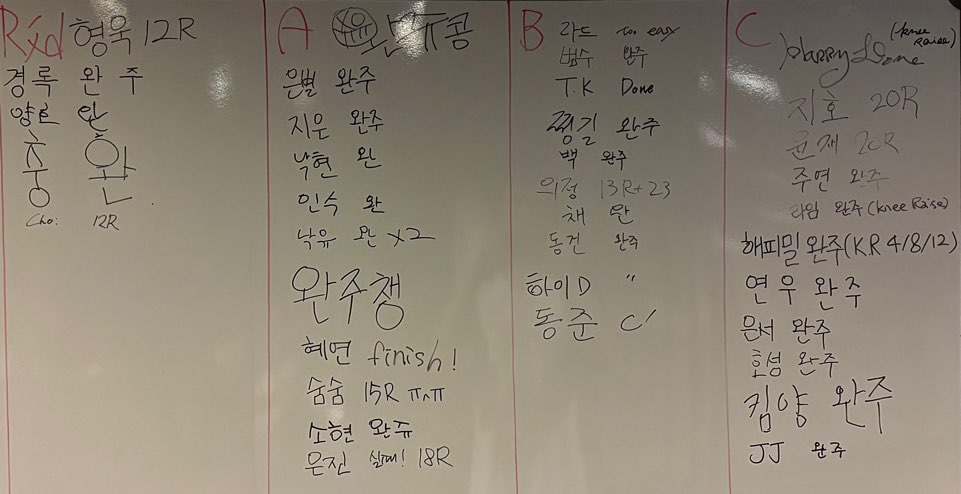 Rxd 형욱 12R
경록 완주
양ㅌ 완
홍 완
Cho: 12R
A 완듀콩
은별 완주
지은 완주
낙현 완
인수 완
낙유 완 X2
완주챙
혜연 finish!
숨숨 15R ㅠㅅㅠ
소현 완쥬
은진 실패! 18R
B 라드 too easy
범수 완주
T.K Done
평길 완주
백 완주
의정 13R+23
채 완
동건 완주
하이D "
동준
C Harry Done (knee Raise)
지호 20R
윤재 20R
주연 완주
라임 완주(knee Raise)
해피밀 완주(K.R 4/8/12)
연우 완주
은서 완주
효성 완주
킴양 완주
JJ 완주